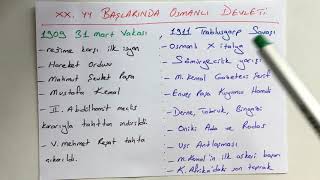 XX. YY BAŞLARINDA OSMANLI DEVLETİ
1909 31 Mart Vakası
- rejime karşı ilk isyan
- Hareket Ordusu
- Mahmut Şevket Paşa
- Mustafa Kemal
- II. Abdülhamit meclis
kararıyla tahttan indirildi
- V. Mehmet Reşat tahta
çıkarıldı
1911 Trablusgarp Savaşı
- Osmanlı X İtalya
- Sömürgecilik yarışı
- M. Kemal Gazeteci Şerif
- Enver Paşa Kuşçubaşı Hamdi
- Derne, Tobruk, Bingazi
- Oniki Ada ve Rodos
- Uşi Antlaşması
- M. Kemal'in ilk askeri başarı
- K. Afrika'daki son toprak